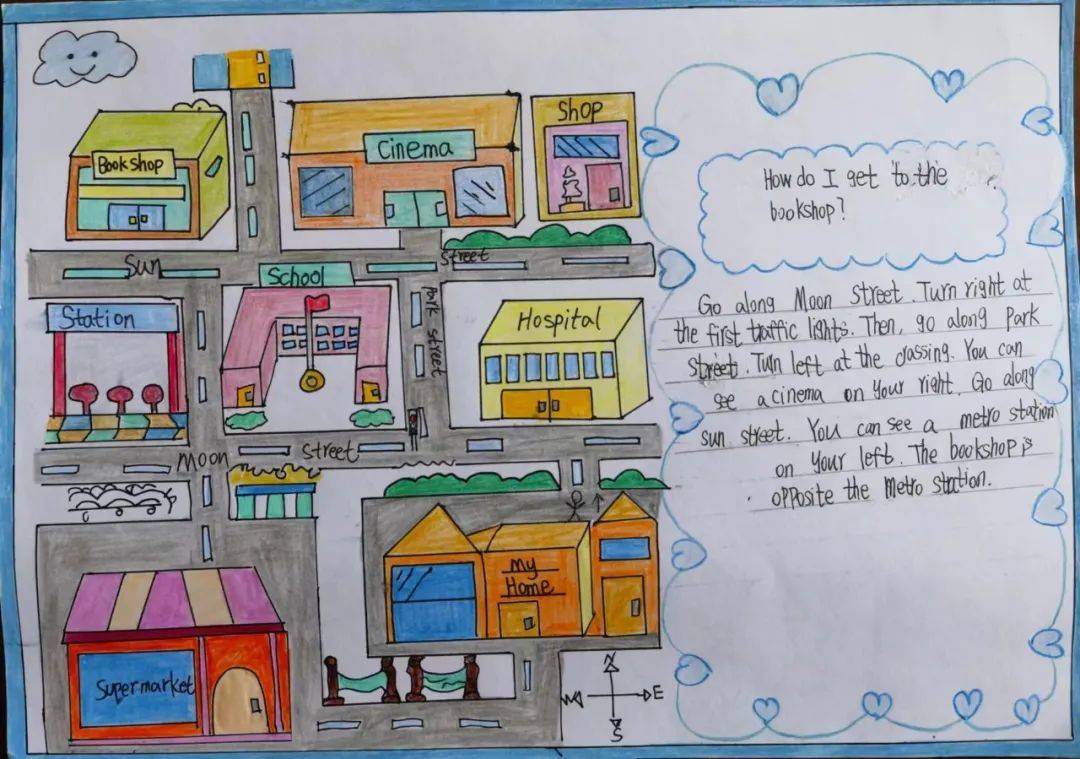 Bookshop
Cinema
Shop
Sun
Street
School
Park Street
Station
Hospital
Moon
Street
My
Home
Supermarket
N
W
E
S
How do I get to the
bookshop?
Go along Moon Street. Turn right at
the first traffic lights. Then, go along Park
Street. Turn left at the crossing. You can
see a cinema on your right. Go along
sun street. You can see a metro station
on your left. The bookshop is
opposite the Metro station.